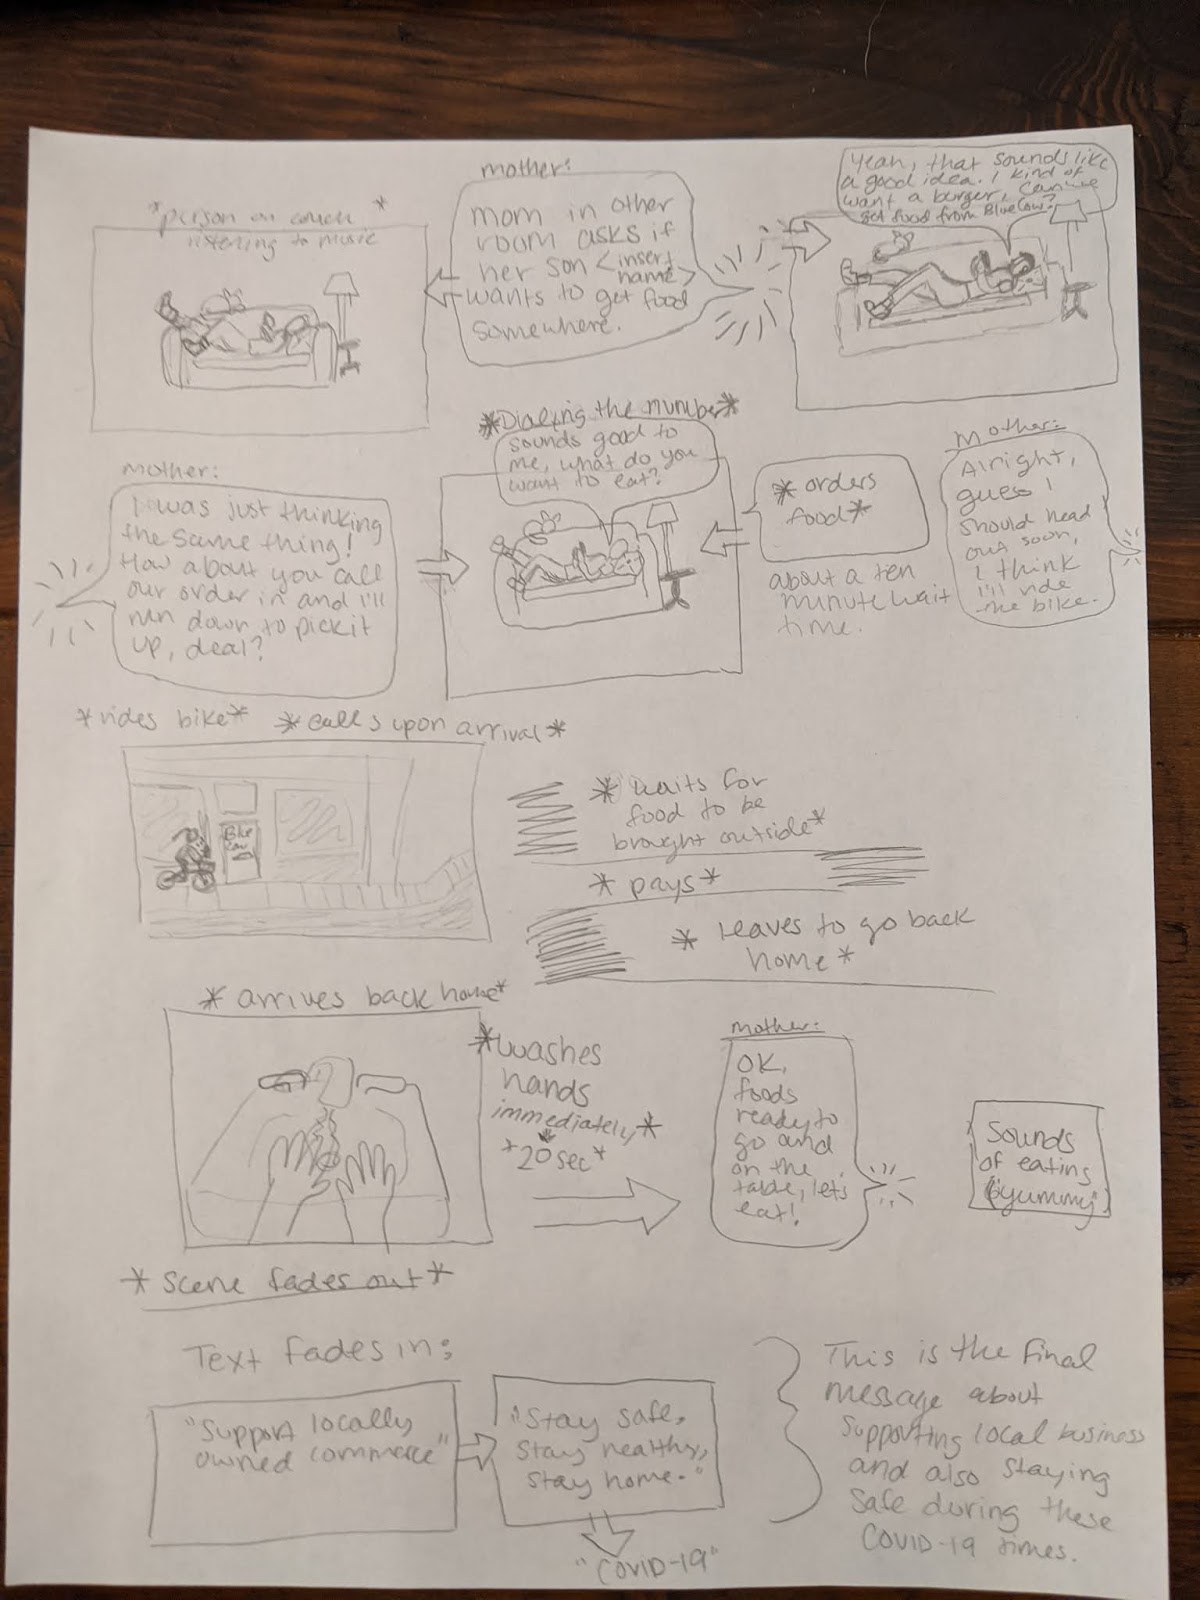 *person on couch *
listening to music
mother:
mom in other
room asks if
her son <insert
name>
wants to get food
somewhere.
Yeah, that sounds like
a good idea. I kind of
want a burger, can we
get food from Blue Cow?
mother:
I was just thinking
the same thing!
How about you call
our order in and I'll
run down to pick it
up, deal?
*Dialing the number*
sounds good to
me, what do you
want to eat?
* orders
food*
about a ten
minute wait
time.
Mother:
Alright,
guess I
should head
out soon,
I think
I'll ride
the bike.
*rides bike* *calls upon arrival*
Blue
Cow
* waits for
food to be
brought outside*
* pays*
* leaves to go back
home*
* arrives back home*
*washes
hands
immediately*
*20 sec*
mother:
OK,
foods
ready to
go and
on the
table, lets
eat!
Sounds
of eating
("yummy")
* Scene fades out*
Text fades in:
"Support locally
owned commerce"
"Stay safe,
stay healthy,
stay home."
"COVID-19"
This is the final
message about
supporting local business
and also staying
safe during these
COVID-19 times.